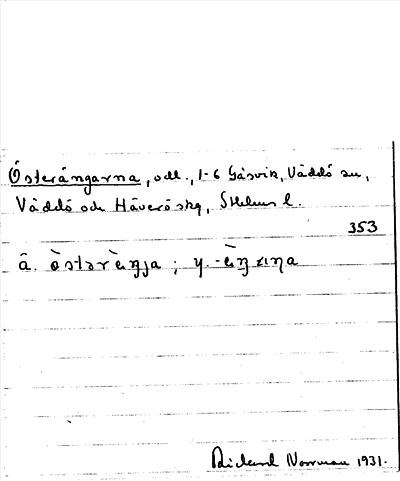 Österängarna, odl., 1-6 Gåsvik, Väddö sn,
Väddö och Häverö skg, Sthlms l.
353
å. ö̀stərèŋja ; y. -èŋɐɩŋa
Richard Norrman 1931.